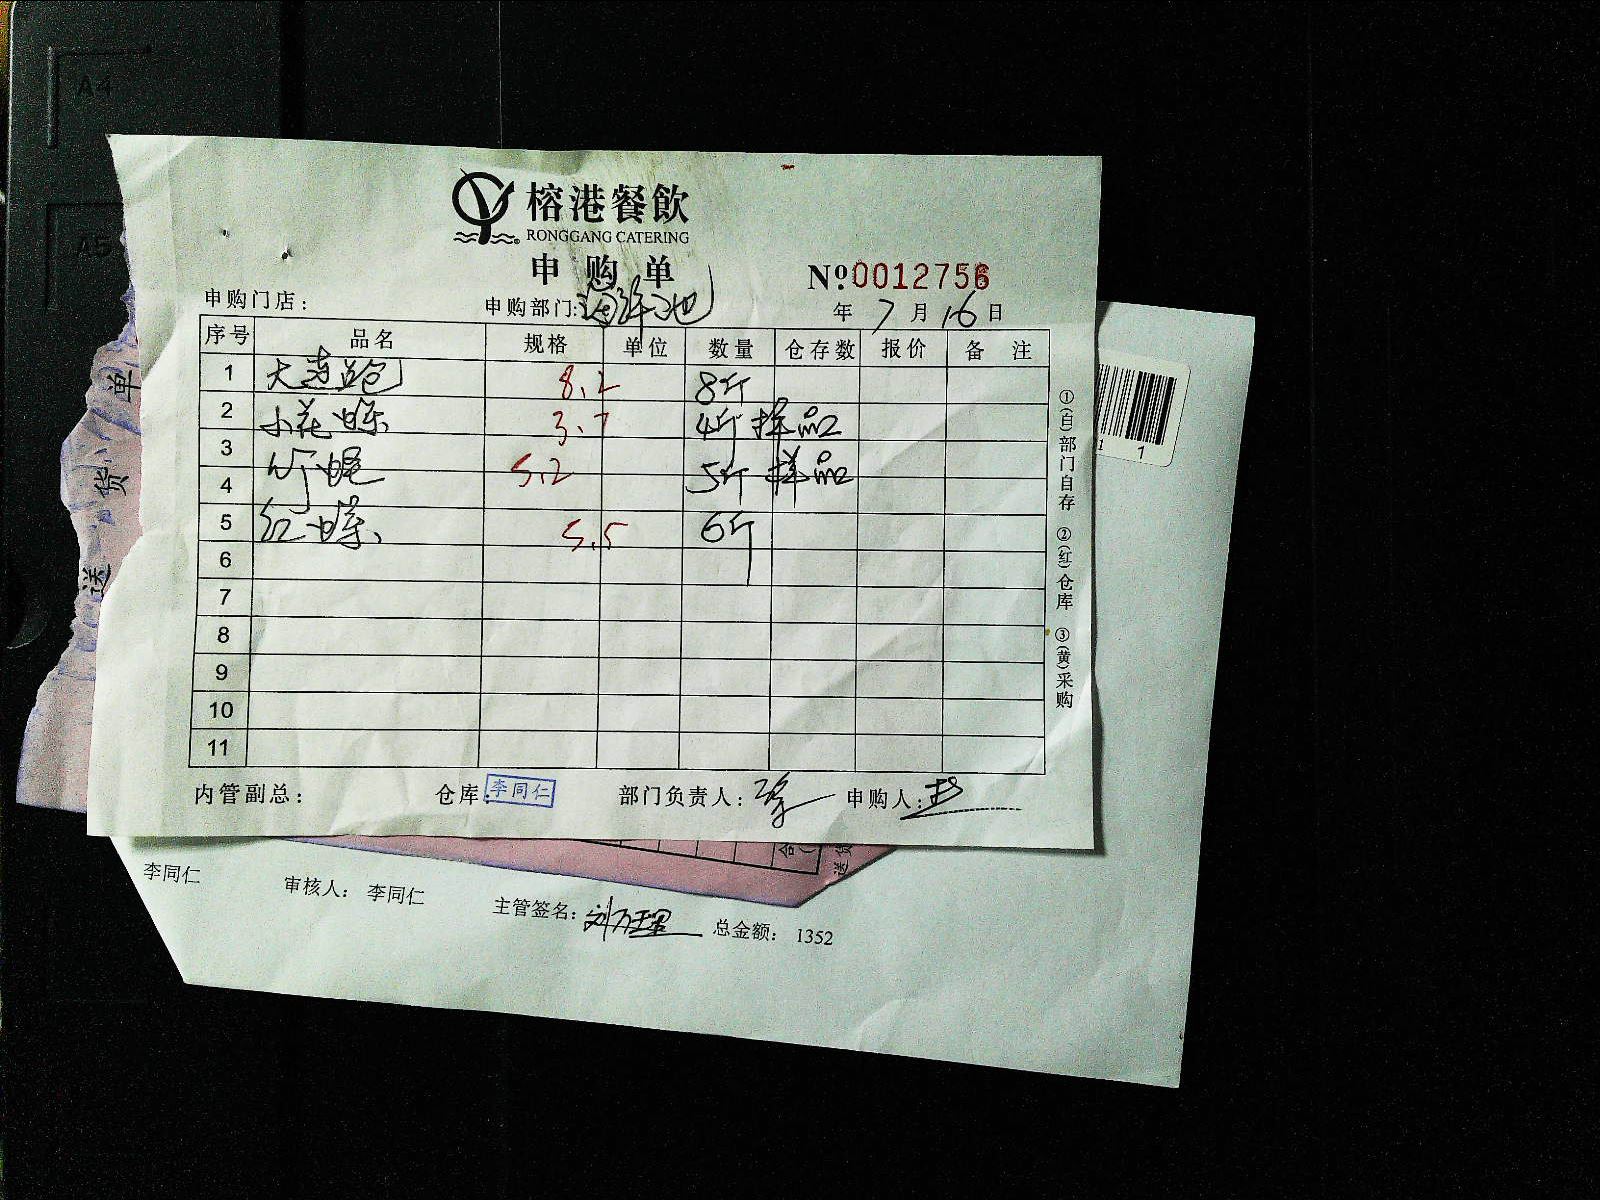 A4
A5
榕港餐飲
RONGGANG CATERING
申购单
Nº:0012756
申购门店： 申购部门:海鲜池 年 7 月 16 日
序号 品名 规格 单位 数量 仓存数 报价 备注
1 大连鲍 8.2 8斤
2 小花螺 3.7 4斤 样品
3
4 竹蛏 5.2 5斤 样品
5 红螺 5.5 6斤
6
7
8
9
10
11
①(白)部门自存 ②(红)仓库 ③(黄)采购
内管副总： 仓库:李同仁 部门负责人: 申购人:
送货单
送货
1 1
李同仁 审核人： 李同仁 主管签名: 总金额： 1352